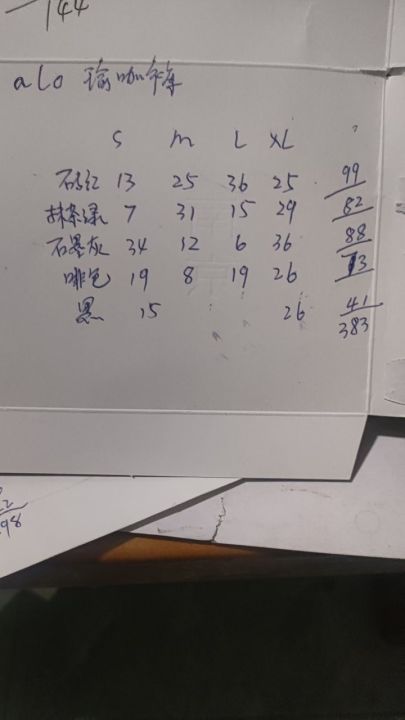 144
alo 瑜咖裤
S M L XL
砖红 13 25 36 25 99
抹茶绿 7 31 15 29 82
石墨灰 34 12 6 36 88
啡色 19 8 19 26 73
黑 15 26 41
383
22
98